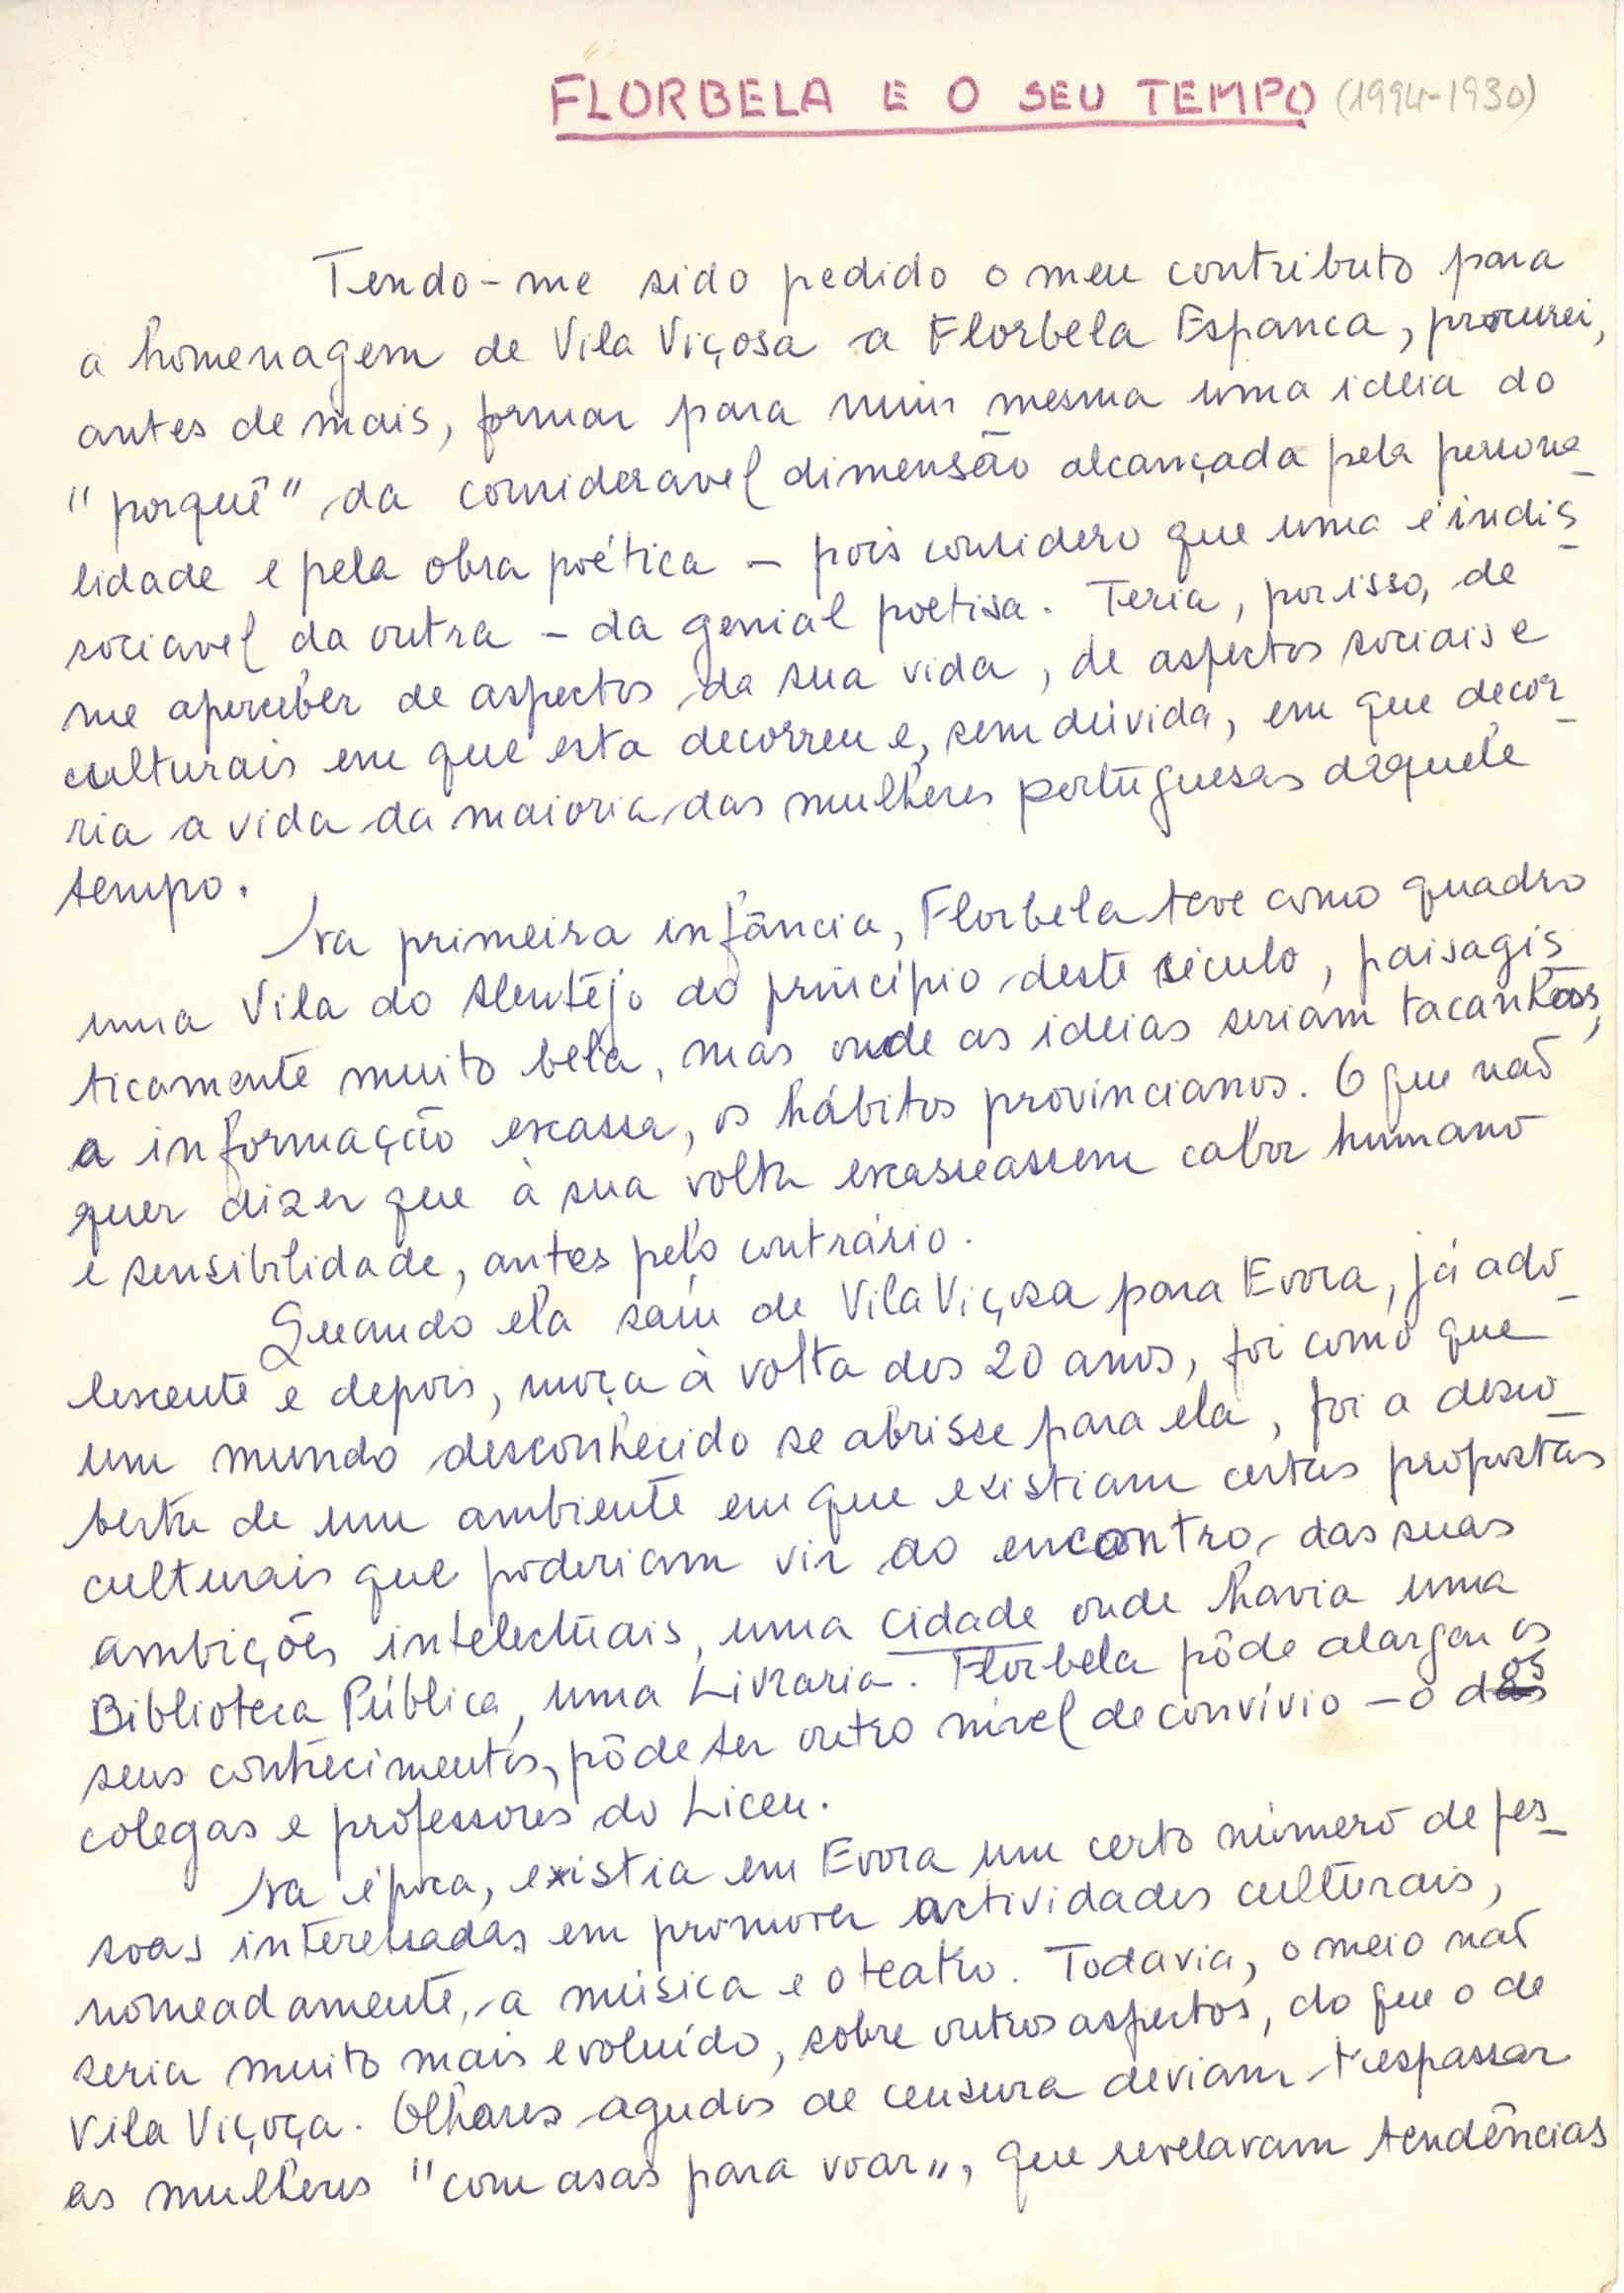 FLORBELA E O SEU TEMPO (1994-1930)
Tendo-me sido pedido o meu contributo para
a homenagem de Vila Viçosa a Florbela Espanca, procurei,
antes de mais, formar para mim mesma uma ideia do
"porquê" da consideravel dimensão alcançada pela persona-
lidade e pela obra poética - pois considero que uma é indis-
sociavel da outra - da genial poetisa. Teria, por isso, de
me aperceber de aspectos da sua vida, de aspectos sociais e
culturais em que esta decorreu e, sem dúvida, em que decor-
ria a vida da maioria das mulheres portuguesas daquele
tempo.
Na primeira infância, Florbela teve como quadro
uma Vila do Alentejo do princípio deste século, paisagis-
ticamente muito bela, mas onde as ideias seriam tacanhas,
a informação escassa, os hábitos provincianos. O que não
quer dizer que à sua volta escasseassem calor humano
e sensibilidade, antes pelo contrário.
Quando ela saíu de Vila Viçosa para Evora, já ado-
lescente e depois, moça à volta dos 20 anos, foi como que
um mundo desconhecido se abrisse para ela, foi a desco-
berta de um ambiente em que existiam certas propostas
culturais que poderiam vir ao encontro das suas
ambições intelectuais, uma cidade onde havia uma
Biblioteca Pública, uma Livraria. Florbela pôde alargar os
seus conhecimentos, pôde ter outro nível de convívio - o dos
colegas e professores do Liceu.
Na época, existia em Evora um certo número de pes-
soas interessadas em promover actividades culturais,
nomeadamente, a música e o teatro. Todavia, o meio não
seria muito mais evoluído, sobre outros aspectos, do que o de
Vila Viçoça. Olhares agudos de censura deviam trespassar
as mulheres "com asas para voar", que revelavam tendências